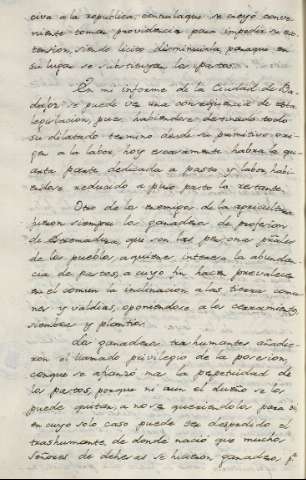 siva a la republica, con la que se creyó conve
niente tomar providencia para impedir su ex
tension, siendo licito disminuirla paraque en
su lugar se substituyan los pastos.
En mi informe de la Ciudad de Ba
dajoz se puede ver una consequencia de esta
legislacion, pues habiendose destinado todo
su dilatado termino desde su primitivo ori
gen a la labor, hoy escasamente habra la qu
arta parte dedicada a pasto y labor, habi
endose reducido a puro pasto la restante.
Otro de los enemigos de la agricultura
fueron siempre los ganaderos de profesion
de Estremadura, que son las personas prâles
de los pueblos, a quienes interesa la abundan
cia de pastos, a cuyo fin hacen prevalecer
en el comun la inclinacion a las tierras comu
nes y valdias, oponiendose a los cerramientos,
siembras y plantios.
Los ganaderos trashumantes añadie
ron el llamado privilegio de la posesion,
conque se afianzó mas la perpetuidad de
los pastos, porque ni aun el dueño se los
puede quitar, a no ser queriendolos para si
en cuyo solo caso puede ser despedido el
trashumante, de donde nació que muchos
Señores de dehesas se hicieron ganaderos, pº